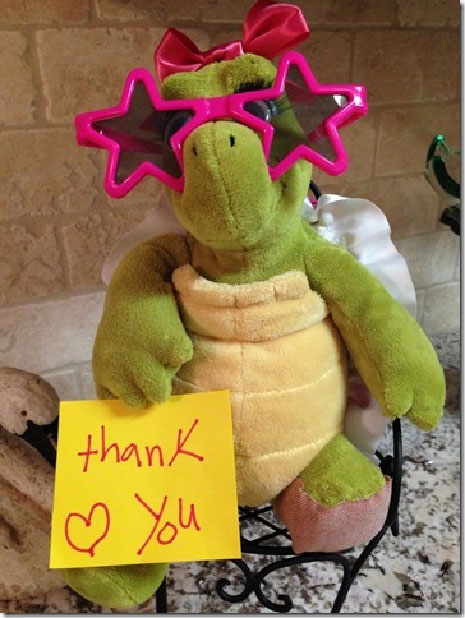 thank
♡ You